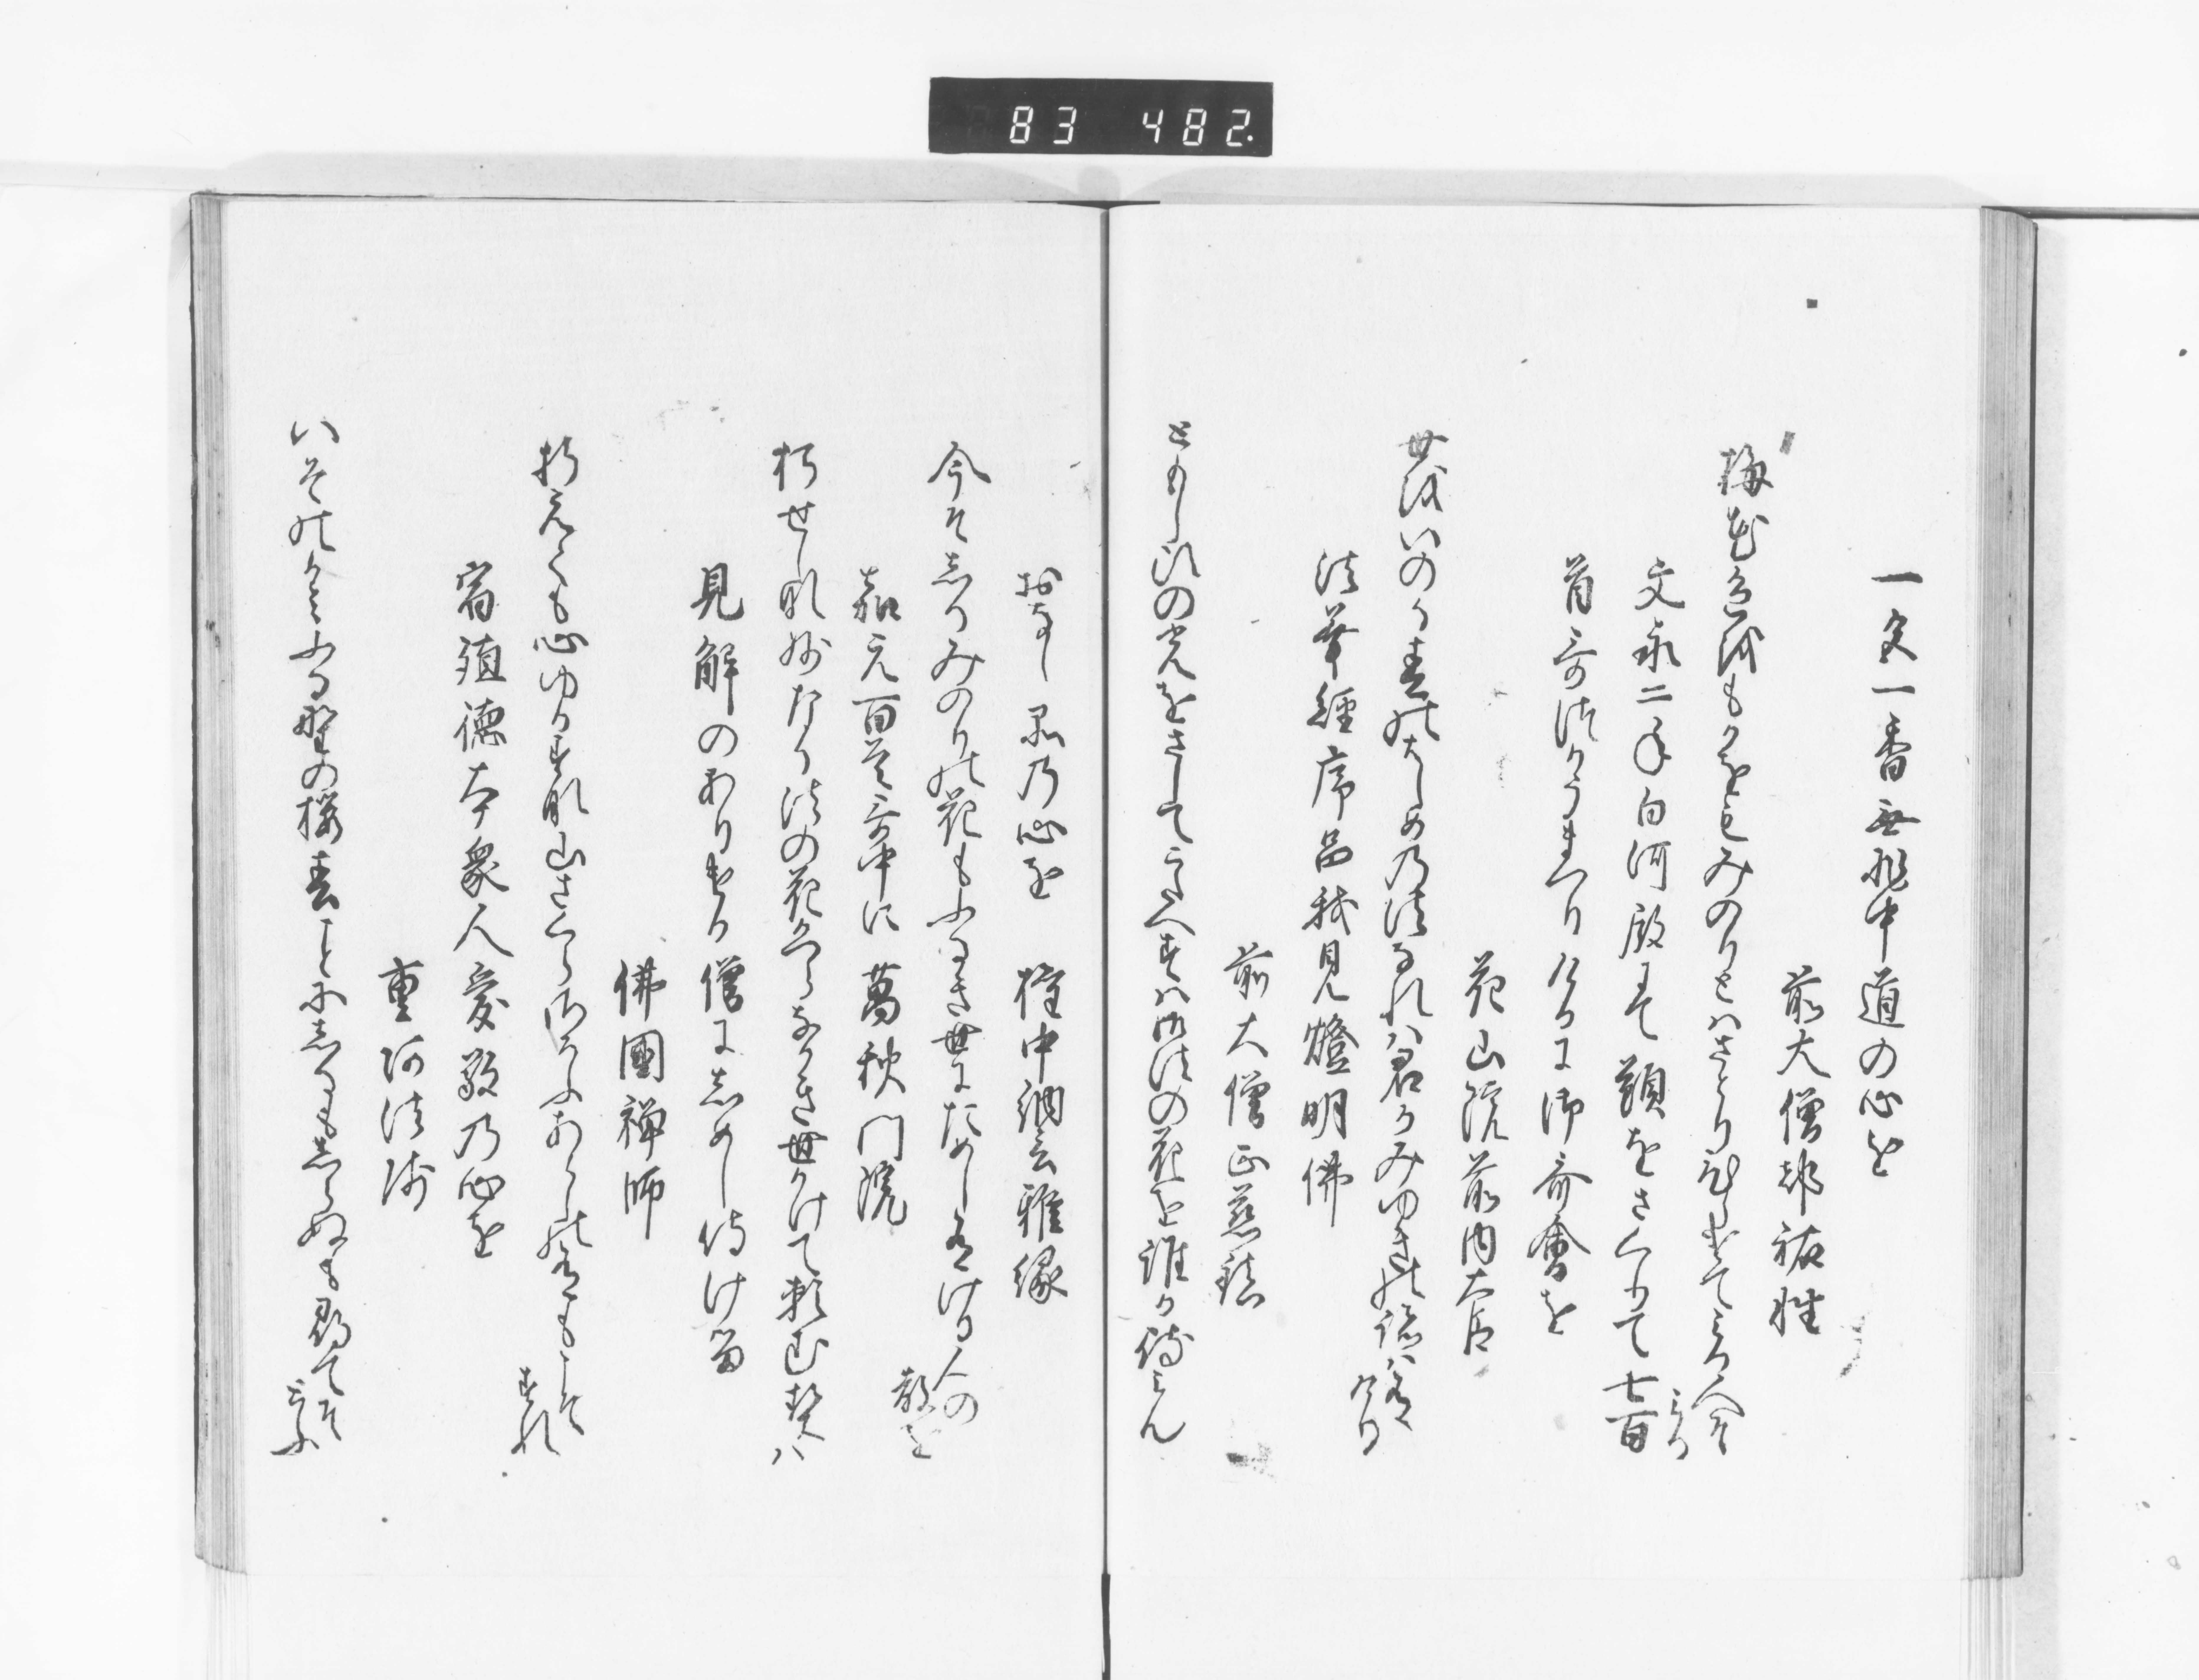 83 482.
一色一香無非中道の心を
前大僧都祐性
梅花色をもかをもみのりとはさとりひらきてみる人そ
みる
文永二年白河殿にて題をさくりて七百
首哥つかうまつりけるに法華會を
花山院前内大臣
世をいのる春のはしめの法なれは君かみゆきの跡は有
けり
法華經序品我見燈明佛
前大僧正慈鎮
ともし火の光をさしてこたへすは御法の花を誰か待みん
おなし品の心を 權中納言雅縁
今そしるみのりの花もふるき世にためし有ける人の
教を
嘉元百首哥中に 萬秋門院
朽せしな妙なる法の花かつらなかき世かけて頼む契は
見解のありける僧にしめし侍ける
佛國禅師
折えても心ゆるすな山さくらさそふあらしの有もこそ
すれ
宿殖徳本衆人愛敬の心を
重阿法師
いその神ふる野の櫻春ことにしるもしらぬも尋てそ
とふ